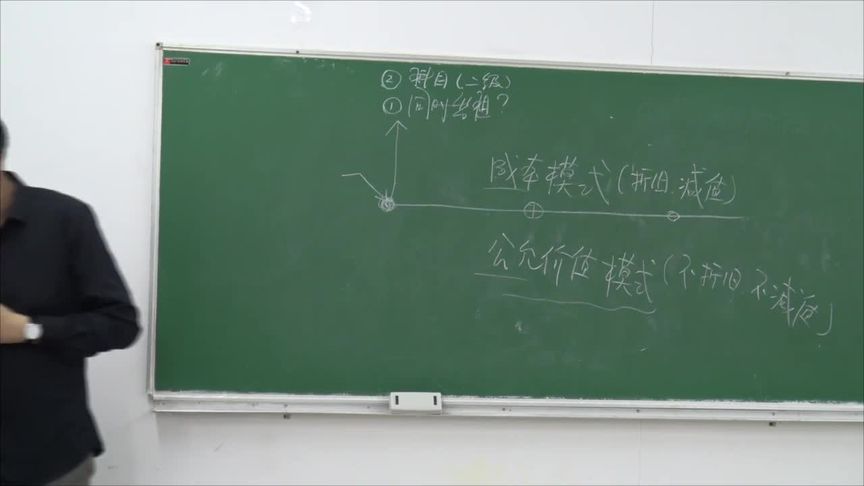 ② 科目(二级)
① 同时出租?
成本模式(折旧,减值)
公允价值模式(不折旧 不减值)